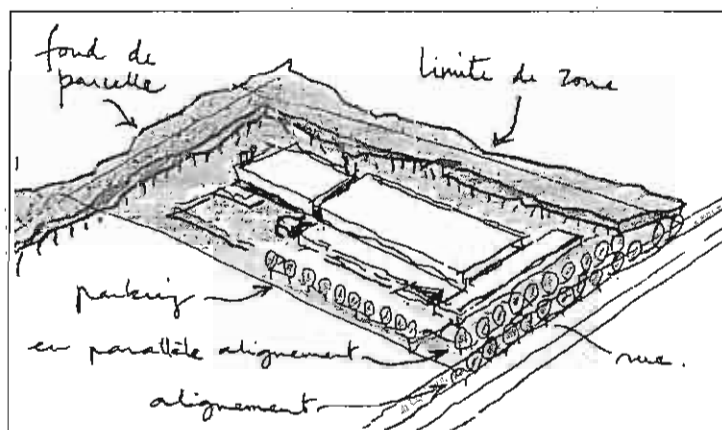 fond de
parcelle
limite de zone
parking
en parallèle alignement
rue.
alignement